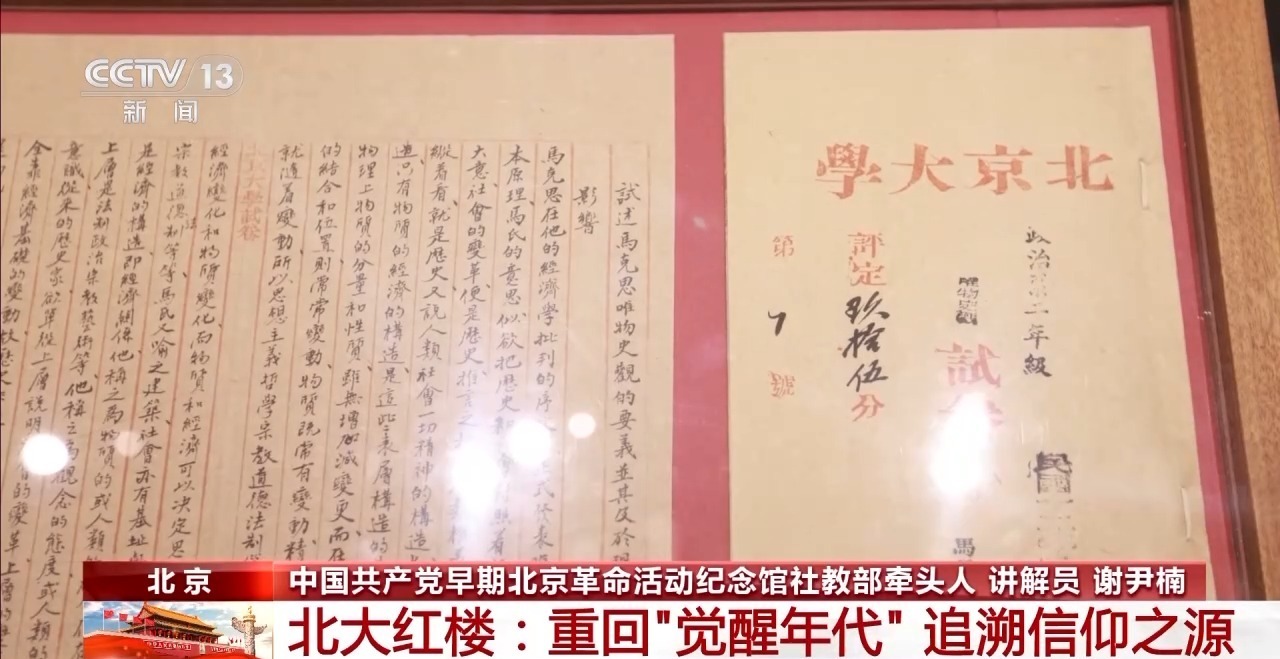 CCTV 13
新闻
北京大學
政治
年級
唯物史觀
試
民國
馬
評定玖拾伍分
第7號
試述馬克思唯物史觀的要義並其及於現
影響
馬克思在他的經濟學批判的序
本原理馬氏的意思似欲把歷史和
大意社會的變革便是歷史推言之
縱着看就是歷史又說人類社會一切精神的構造
造只有物質的經濟的構造是這些表層構造的
物理上物質的分量和性質雖無增加減變更而在
的結合和位置則常常變動物質既常有變動精
就隨着變動所以思想主義哲學宗教道德法制
大學試卷
經濟變化和物質變化而物質和經濟可以決定思
宗教道德法制等等馬氏又論之建築社會亦有基址
是經濟的構造即經濟關係他稱之為物質的或人類
上層是法制政治宗教藝術等他稱之為觀念的態度或人類的
意識從來的歷史家欲單從上層說明
全靠經濟基礎的變動故歷
北京
中国共产党早期北京革命活动纪念馆社教部牵头人 讲解员 谢尹楠
北大红楼：重回"觉醒年代" 追溯信仰之源